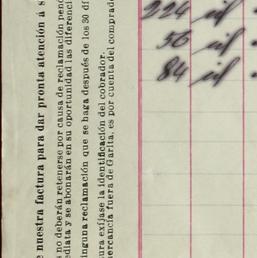 e nuestra factura para dar pronta atención á s
s no deberán retenerse por causa de reclamación pend
ediata y se abonarán en su oportunidad las diferenci
inguna reclamación que se haga después de los 30 dí
ura exíjase la identificación del cobrador.
ercancía fuera de Garita, es por cuenta del comprado
224 id
56 id
84 id